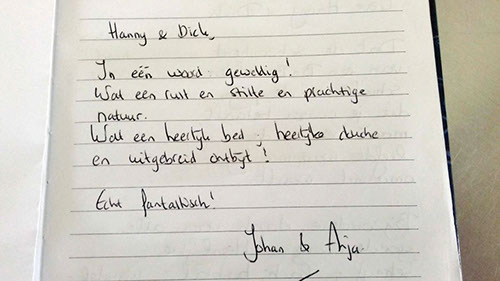 Hanny & Dick,
In één woord geweldig!
Wat een rust en stilte en prachtige
natuur.
Wat een heerlijk bed, heerlijke douche
en uitgebreid ontbijt!
Echt fantastisch!
Johan & Anja